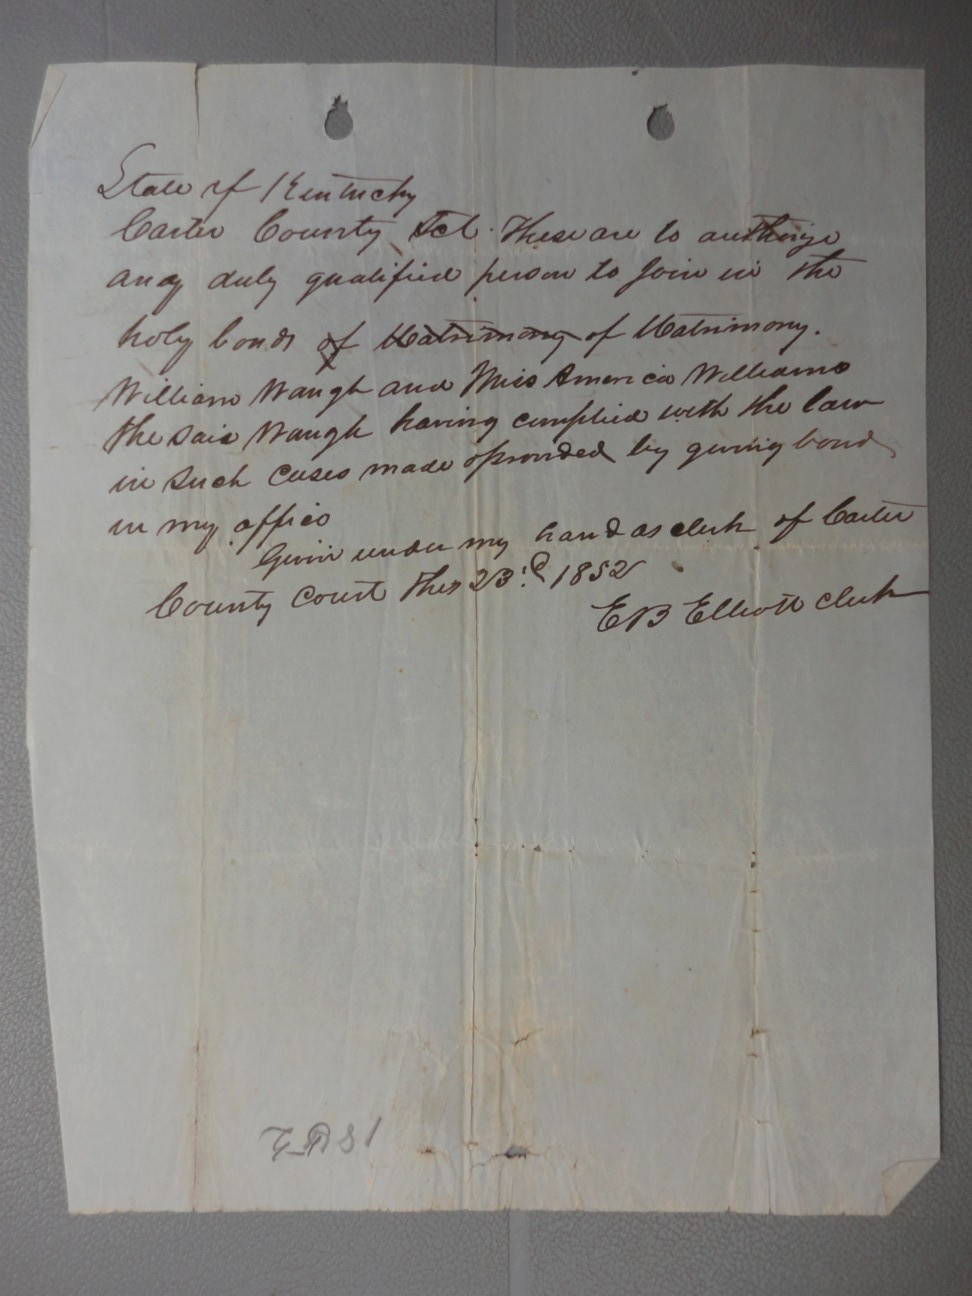 State of Kentucky
Carter County Sct. These are to authorize
any duly qualified person to Join in the
holy bonds of Matrimony of Matrimony.
William Waugh and Miss America Williams
the said Waugh having complied with the law
in such cases made & provided by giving bond
in my office
Given under my hand as clerk of Carter
County Court this 23.d 1852
E B Elliott Clerk